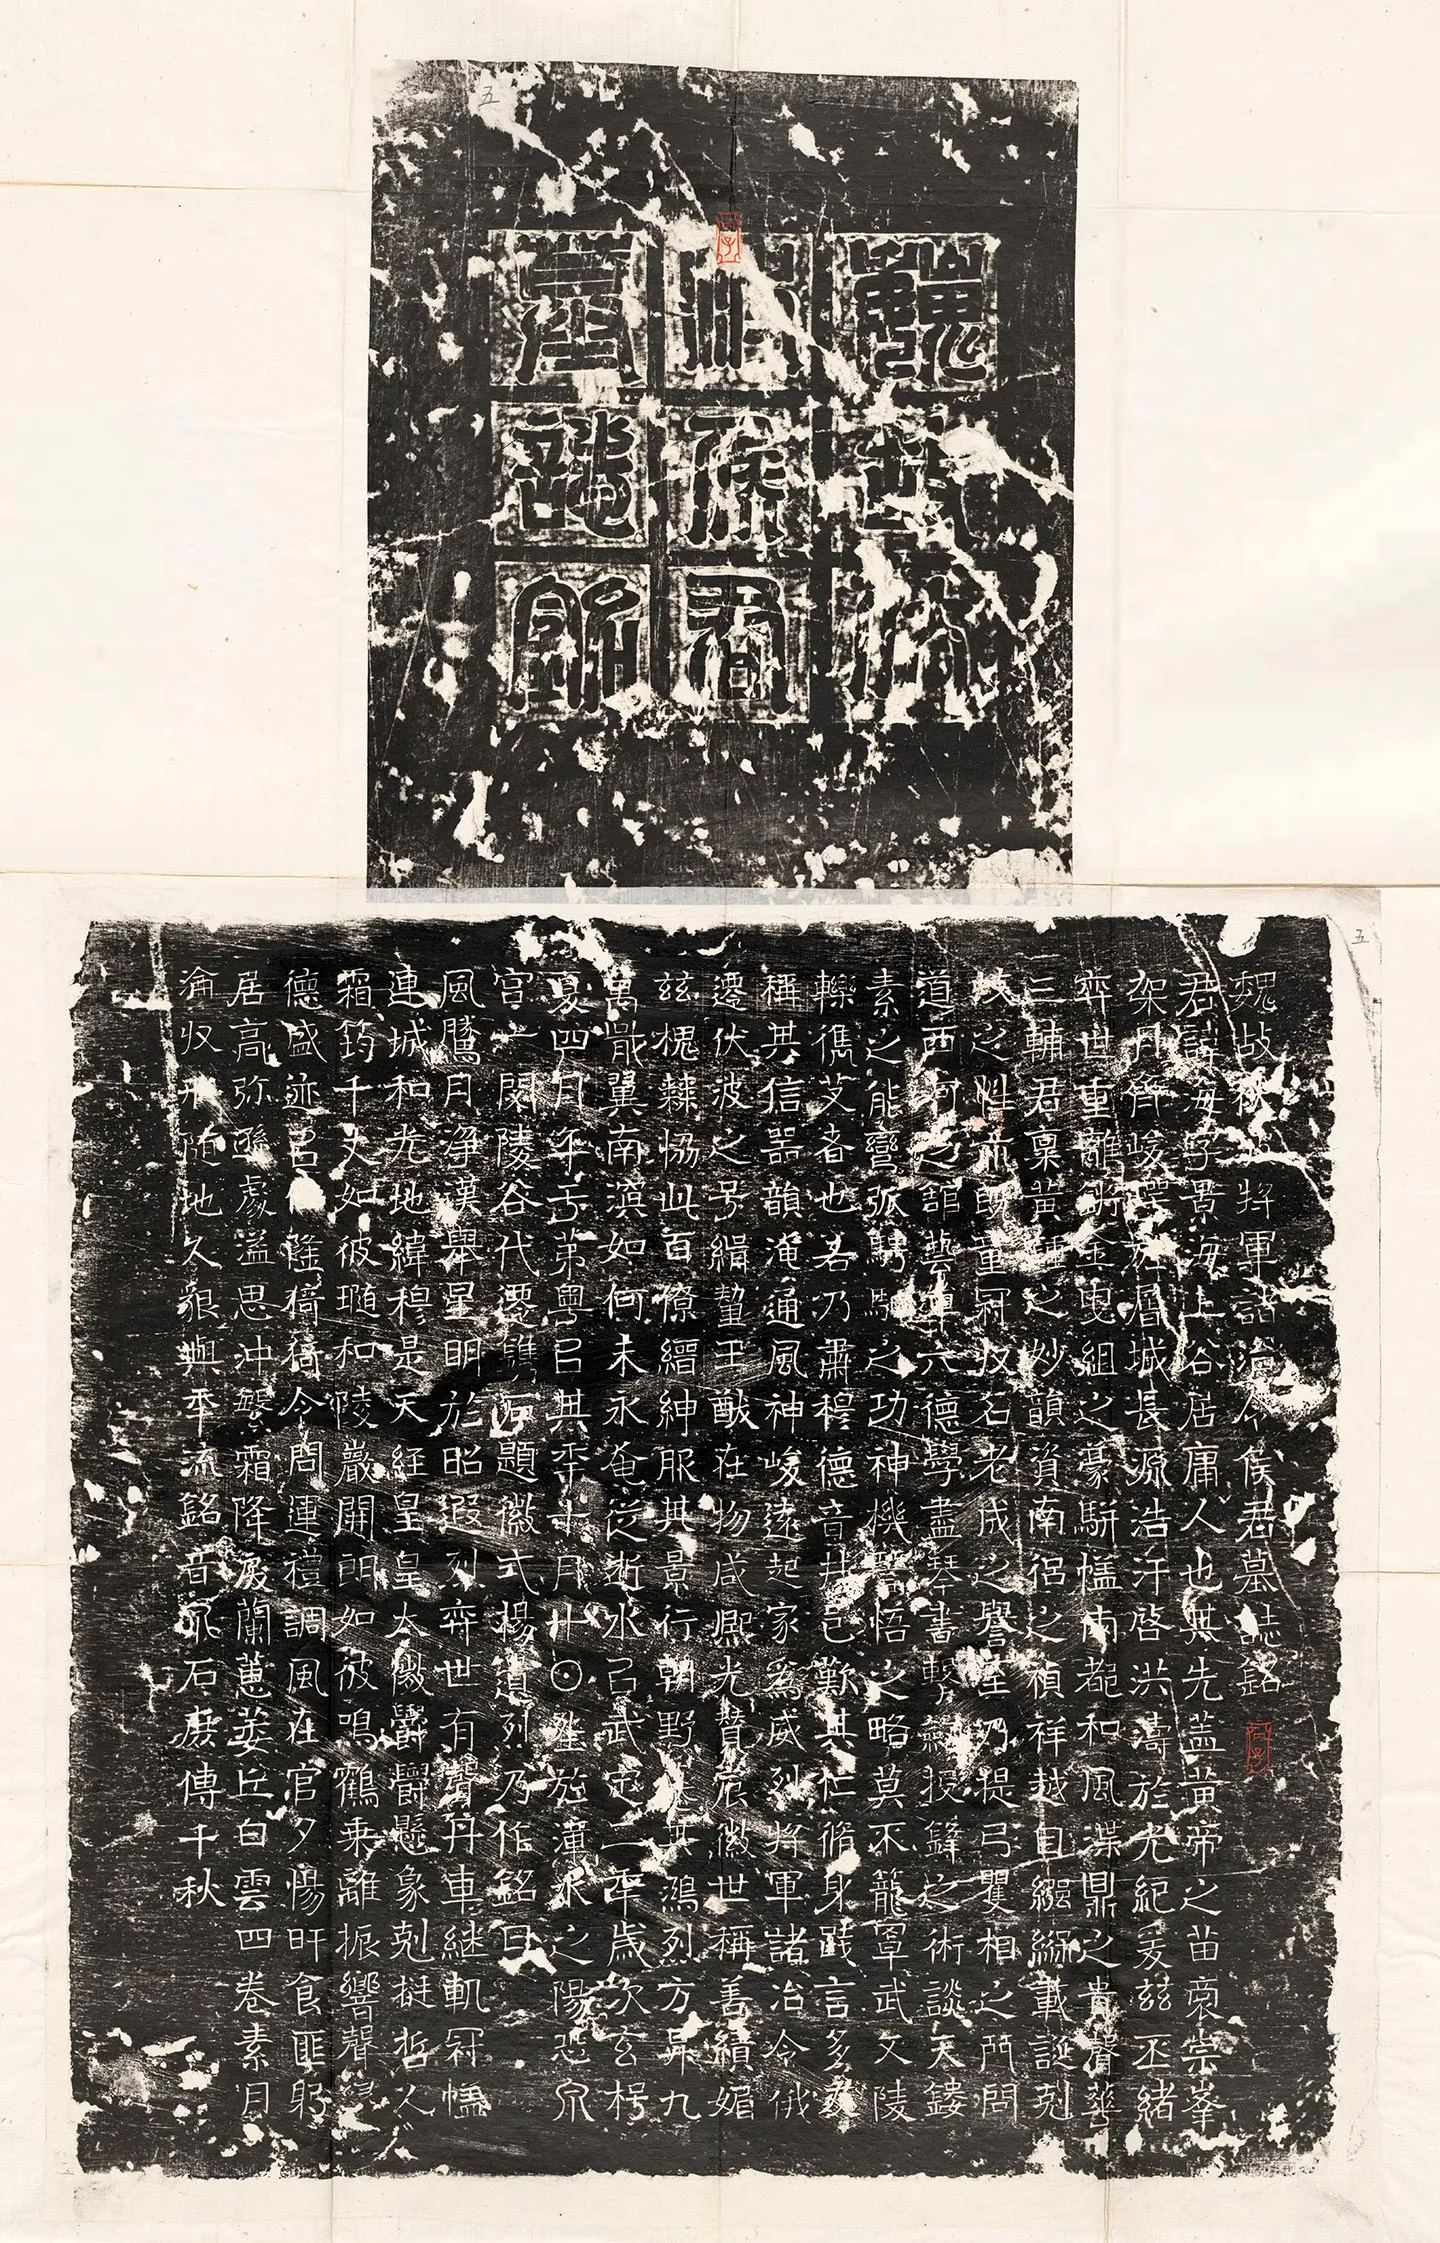 魏故
侯君
墓誌銘
魏故伏波將軍諸冶令侯君墓誌銘
君諱海字景海上谷居庸人也其先蓋黃帝之苗裔崇峯
架月齊峻層城長源浩汗啓洪濤於光紀爰茲丕緒
弈世重離金曳組之豪駢幡南都和風渫鼎之貴聲華
三輔君稟黃之妙韻資南侶之禎祥越自繈緥載誕剋
之性而既童冠收名老成之譽至乃提弓瞿相之門問
道西河之館藝單六德學盡琴書授辭之術談天鏤
素之能彎弧之功神機悟之略莫不籠罩武文陵
轢儁艾者也若乃肅穆德音井邑歎其仁脩身踐言多友
稱其信器韻淹通風神峻遠起家爲威烈將軍諸冶令俄
遷伏波之号緝蟄王猷在物咸熙光贊宸徽世稱善績媚
茲槐棘恊此百僚縉紳服其景行朝野其鴻烈方昇九
萬戢翼南溟如何未永奄從逝水以武定二年歲次玄枵
夏四月卒于第粵以其年十月廿日窆於漳水之陽恐泉
宮一閟陵谷代遷鐫石題徽式揚遺烈乃作銘曰
風騰月淨漢舉星明於昭遐烈弈世有聲丹車繼軌冠幡
連城和光地緯穆是天經皇皇太嶽爵爵懸象剋挺哲人
霜筠千丈如彼瑻和陵巖開朗如彼鳴鶴乘離振響聲
德盛迹隆猗猗令問運禮調風在官夕惕旰食匪躬
居高弥遜處溢思沖繁霜降戾蘭蕙萎丘白雲四卷素月
淪收形随地久貌與年流銘音泉石庶傳千秋